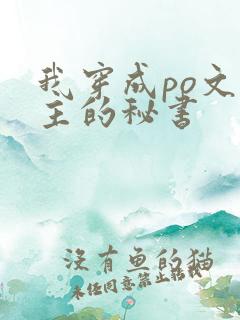 我穿成po文
主的秘书
没有鱼的猫
未经同意禁止转载